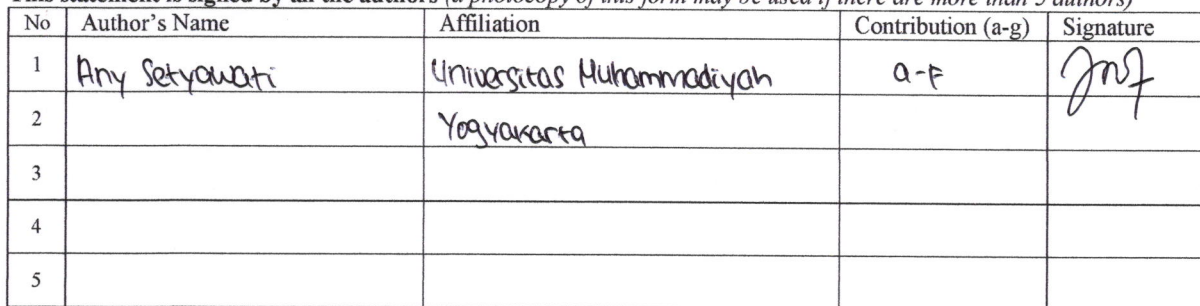 This statement is signed by all the authors (a photocopy of this form may be used if there are more than 5 authors)
No Author's Name Affiliation Contribution (a-g) Signature
1 Any Setyawati Universitas Muhammadiyah a-f
2 Yogyakarta
3
4
5